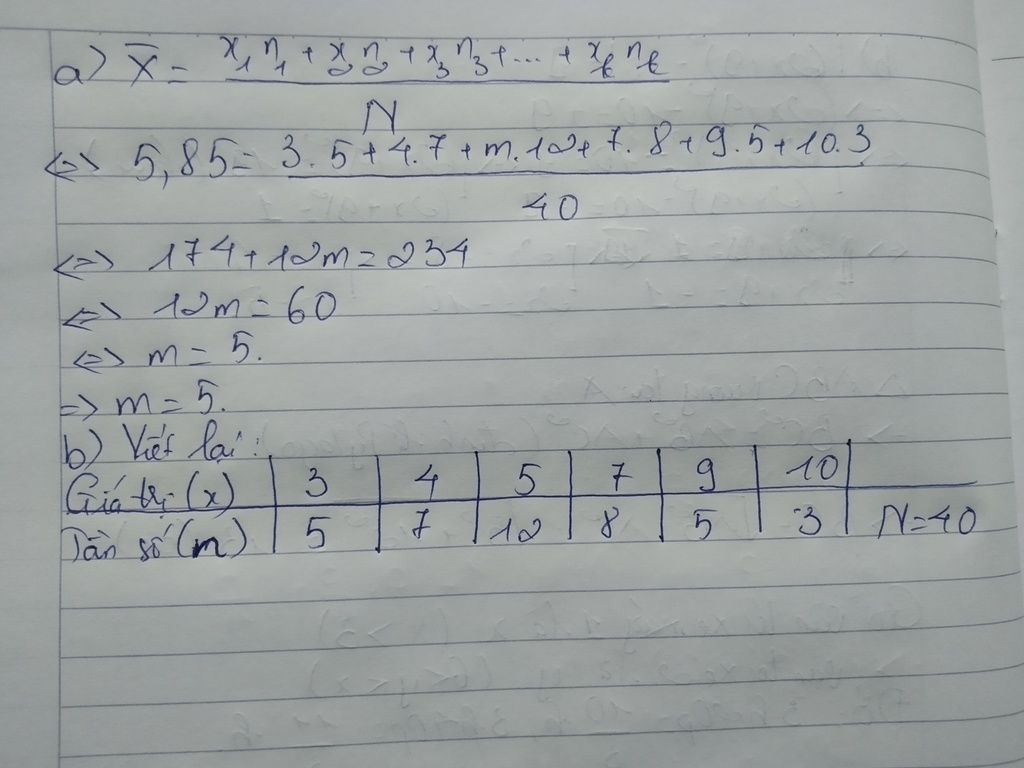 a) X̄ = x₁n₁ + x₂n₂ + x₃n₃ + ... + xₖnₖ
N
<=> 5,85 = 3.5+4.7+m.12+7.8+9.5+10.3
40
<=> 174+12m=234
<=> 12m=60
<=> m=5.
=> m=5.
b) Viết lại:
Giá trị (x) 3 4 5 7 9 10
Tần số (n) 5 7 12 8 5 3 N=40